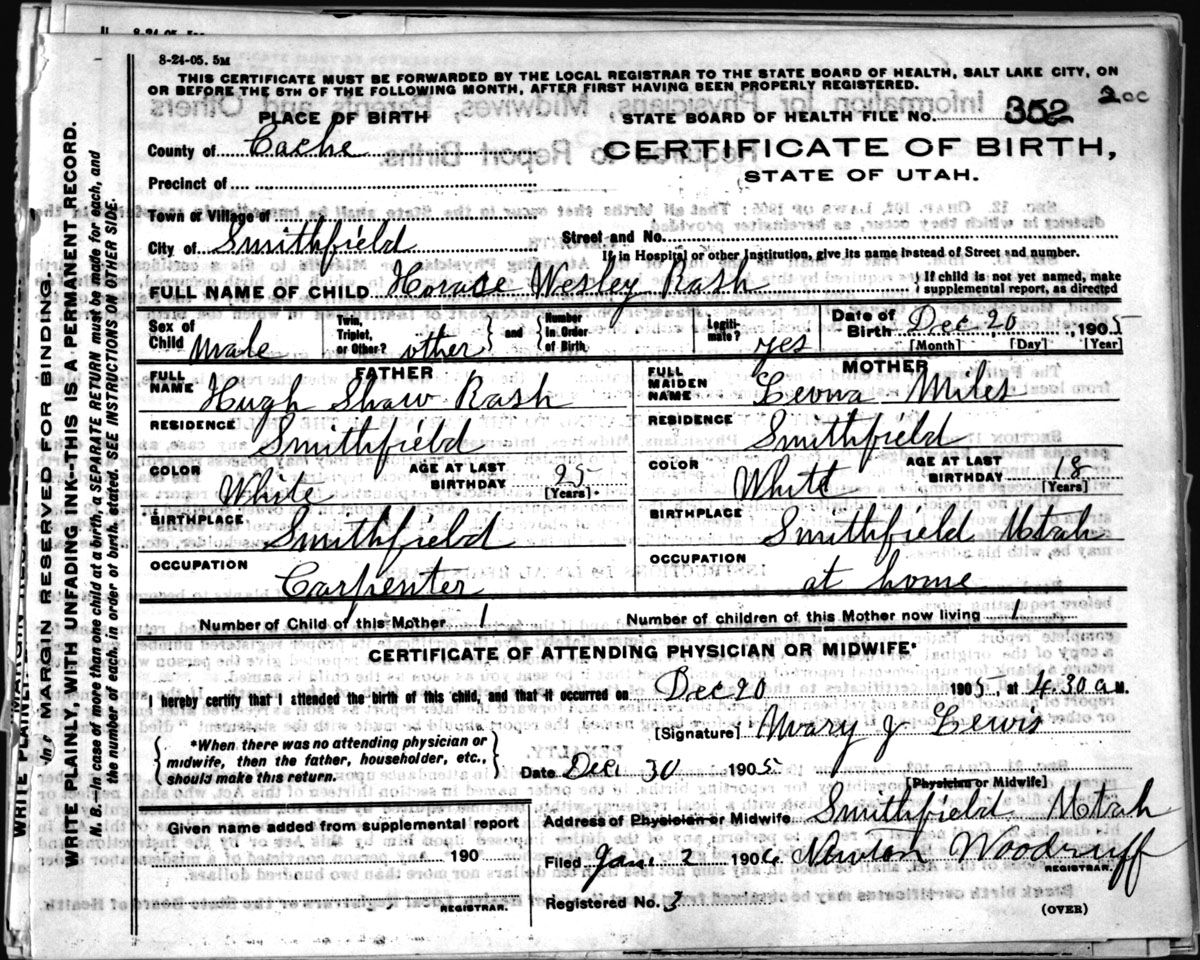 8-24-05. 5M
THIS CERTIFICATE MUST BE FORWARDED BY THE LOCAL REGISTRAR TO THE STATE BOARD OF HEALTH, SALT LAKE CITY, ON
OR BEFORE THE 5TH OF THE FOLLOWING MONTH, AFTER FIRST HAVING BEEN PROPERLY REGISTERED.
PLACE OF BIRTH
STATE BOARD OF HEALTH FILE NO. 352 200
County of Cache
CERTIFICATE OF BIRTH,
STATE OF UTAH.
Precinct of
Town or Village of
City of Smithfield
Street and No.
If in Hospital or other Institution, give its name instead of Street and number.
FULL NAME OF CHILD Horace Wesley Rash
If child is not yet named, make
supplemental report, as directed
Sex of Child Male
Twin, Triplet, or Other? other and Number in Order of Birth
Legiti-mate? yes
Date of Birth Dec 20, 1905
[Month] [Day] [Year]
FATHER
FULL NAME Hugh Shaw Rash
RESIDENCE Smithfield
COLOR White AGE AT LAST BIRTHDAY 25 [Years]
BIRTHPLACE Smithfield
OCCUPATION Carpenter
MOTHER
FULL MAIDEN NAME Leona Miles
RESIDENCE Smithfield
COLOR White AGE AT LAST BIRTHDAY 18 [Years]
BIRTHPLACE Smithfield Utah
OCCUPATION at home
Number of Child of this Mother 1
Number of children of this Mother now living 1
CERTIFICATE OF ATTENDING PHYSICIAN OR MIDWIFE*
I hereby certify that I attended the birth of this child, and that it occurred on Dec 20 1905, at 4.30 a M.
[Signature] Mary J Lewis
*When there was no attending physician or
midwife, then the father, householder, etc.,
should make this return.
Date Dec 30 1905
[Physician or Midwife]
Address of Physician or Midwife Smithfield Utah
Given name added from supplemental report
190
REGISTRAR.
Filed Jan. 2 1906 Newton Woodruff
REGISTRAR.
Registered No. 3
(OVER)
MARGIN RESERVED FOR BINDING.
WRITE PLAINLY, WITH UNFADING INK--THIS IS A PERMANENT RECORD.
N. B.--in case of more than one child at a birth, a SEPARATE RETURN must be made for each, and
the number of each, in order of birth, stated. SEE INSTRUCTIONS ON OTHER SIDE.